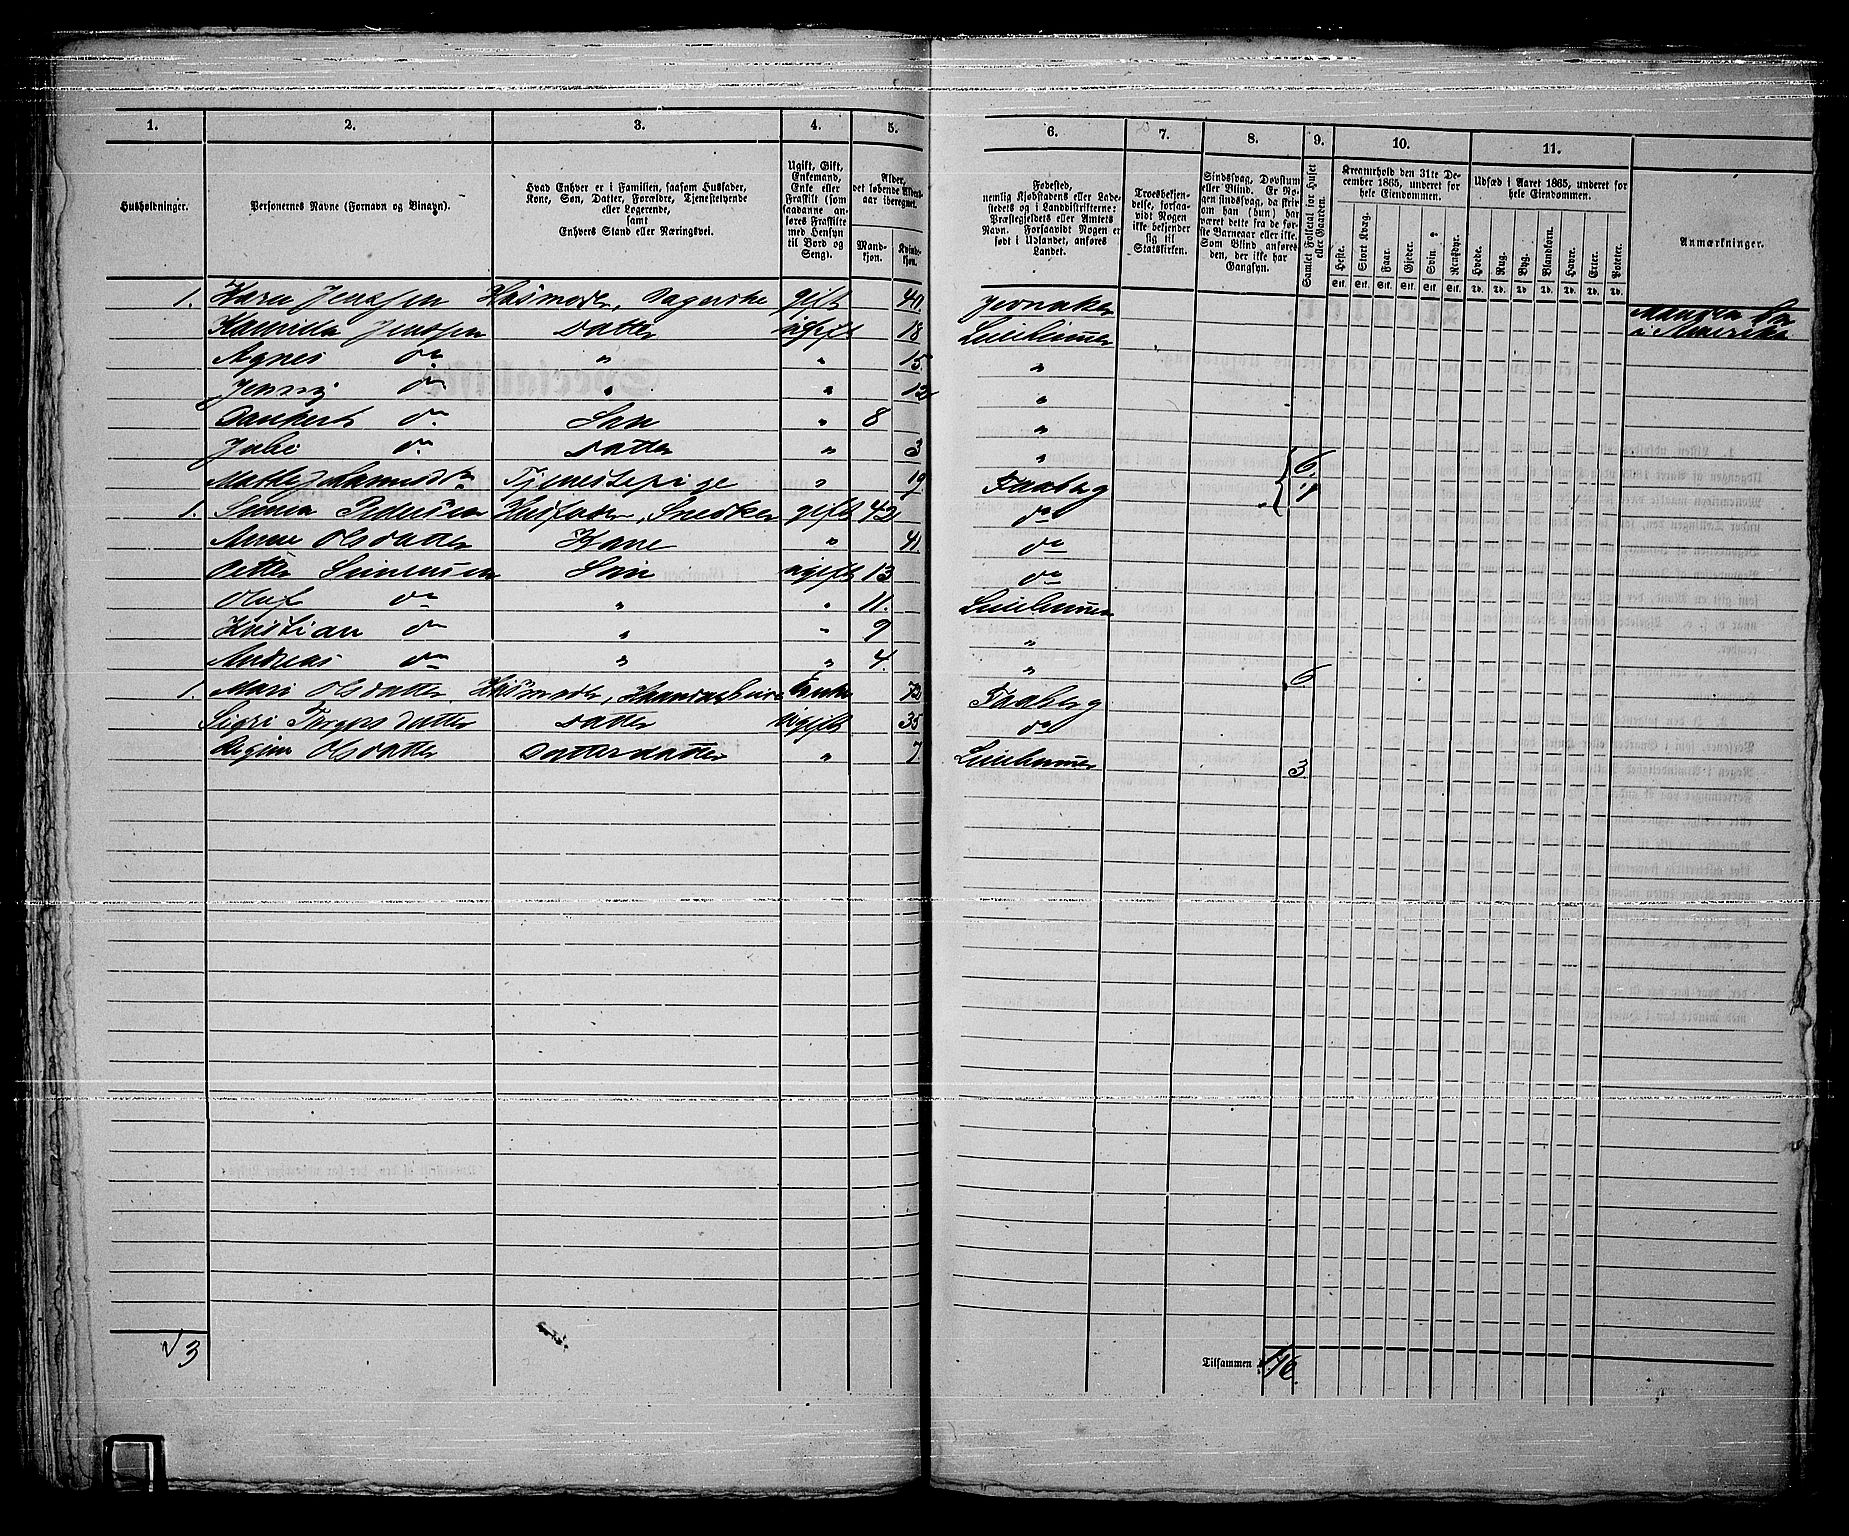 1. 2. 3. 4. 5. 6. 7. 8. 9. 10. 11.
Husholdninger.
Personernes Navne (Fornavn og Binavn).
Hvad Enhver er i Familien, saasom Husfader,
Kone, Søn, Datter, Forældre, Tjenestetyende
eller Logerende,
samt
Enhvers Stand eller Næringsvei.
Ugift, Gift,
Enkemand,
Enke eller
Fraskilt (som
saadanne an-
føres Fraskilte
med Hensyn
til Bord og
Seng).
Alder,
det løbende Alders-
aar iberegnet.
Mand-
kjøn.
Kvinde-
kjøn.
Fødested,
nemlig Kjøbstadens eller Lade-
stedets og i Landdistrikterne:
Præstegjeldets eller Amtets
Navn. Forsaavidt Nogen er
født i Udlandet, anføres
Landet.
Troesbekjen-
delse, forsaa-
vidt Nogen
ikke bekjender
sig til
Statskirken.
Sindssvag, Døvstum
eller Blind. Er No-
gen sindssvag, da skriv
om han (hun) har
været dette fra de før-
ste Barneaar eller ikke.
Som Blind anføres
den, der ikke har
Gangsyn.
Samlet Folketal for Huset
eller Gaarden.
Kreaturhold den 31te De-
cember 1865, underet for
hele Eiendommen.
Heste. Stort Kvæg. Faar. Gjeder. Svin. Rensdyr.
Stk. Stk. Stk. Stk. Stk. Stk.
Udsæd i Aaret 1865, underet for
hele Eiendommen.
Hvede. Rug. Byg. Blandkorn. Havre. Erter. Poteter.
Td. Td. Td. Td. Td. Td. Td.
Anmærkninger.
1. Karen Jenssen Husmoder, gift 40. Jevnaker Manden
Kamilla Jenssen Datter ugift 18 Lillehammer i Amerika
Agnes do " " 15. "
Jenny do " " 12 "
Dankert do Søn " 8 "
Julie do Datter " 3 "
Mathe Tjenestepige " 19 Faaberg 6. 1
1. Simen Pedersen Husfader, Snedker gift 42 do
Anne Olsdatter Kone " 41. do
Petter Simensen Søn ugift 13 do
Oluf do " " 11. Lillehammer
Kristian do " " 9 "
Andreas do " " 4. " 6
1. Mari Olsdatter Husmoder, Enke 72 Faaberg
Sigri Torgersdatter Datter ugift 35 do
Regine Olsdatter Datterdatter " 7 Lillehammer 3
√ 3
Tilsammen 16.